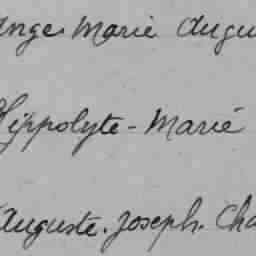 Ange Marie Augu
Hippolyte - Marié
Auguste. Joseph. Cha